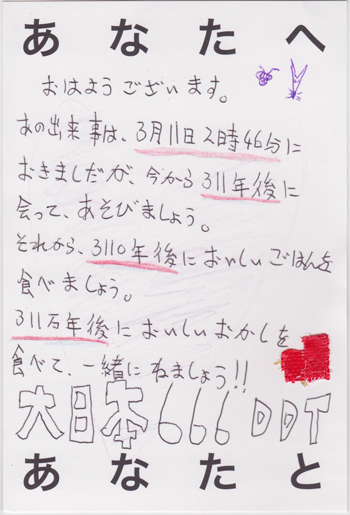 あなたへ
おはようございます。
あの出来事は、3月11日2時46分に
おきましだが、今から311年後に
会って、あそびましょう。
それから、3110年後においしいごはんを
食べましょう。
311万年後においしいおかしを
食べて、一緒にねましょう!!
大日本666DDT
あなたと